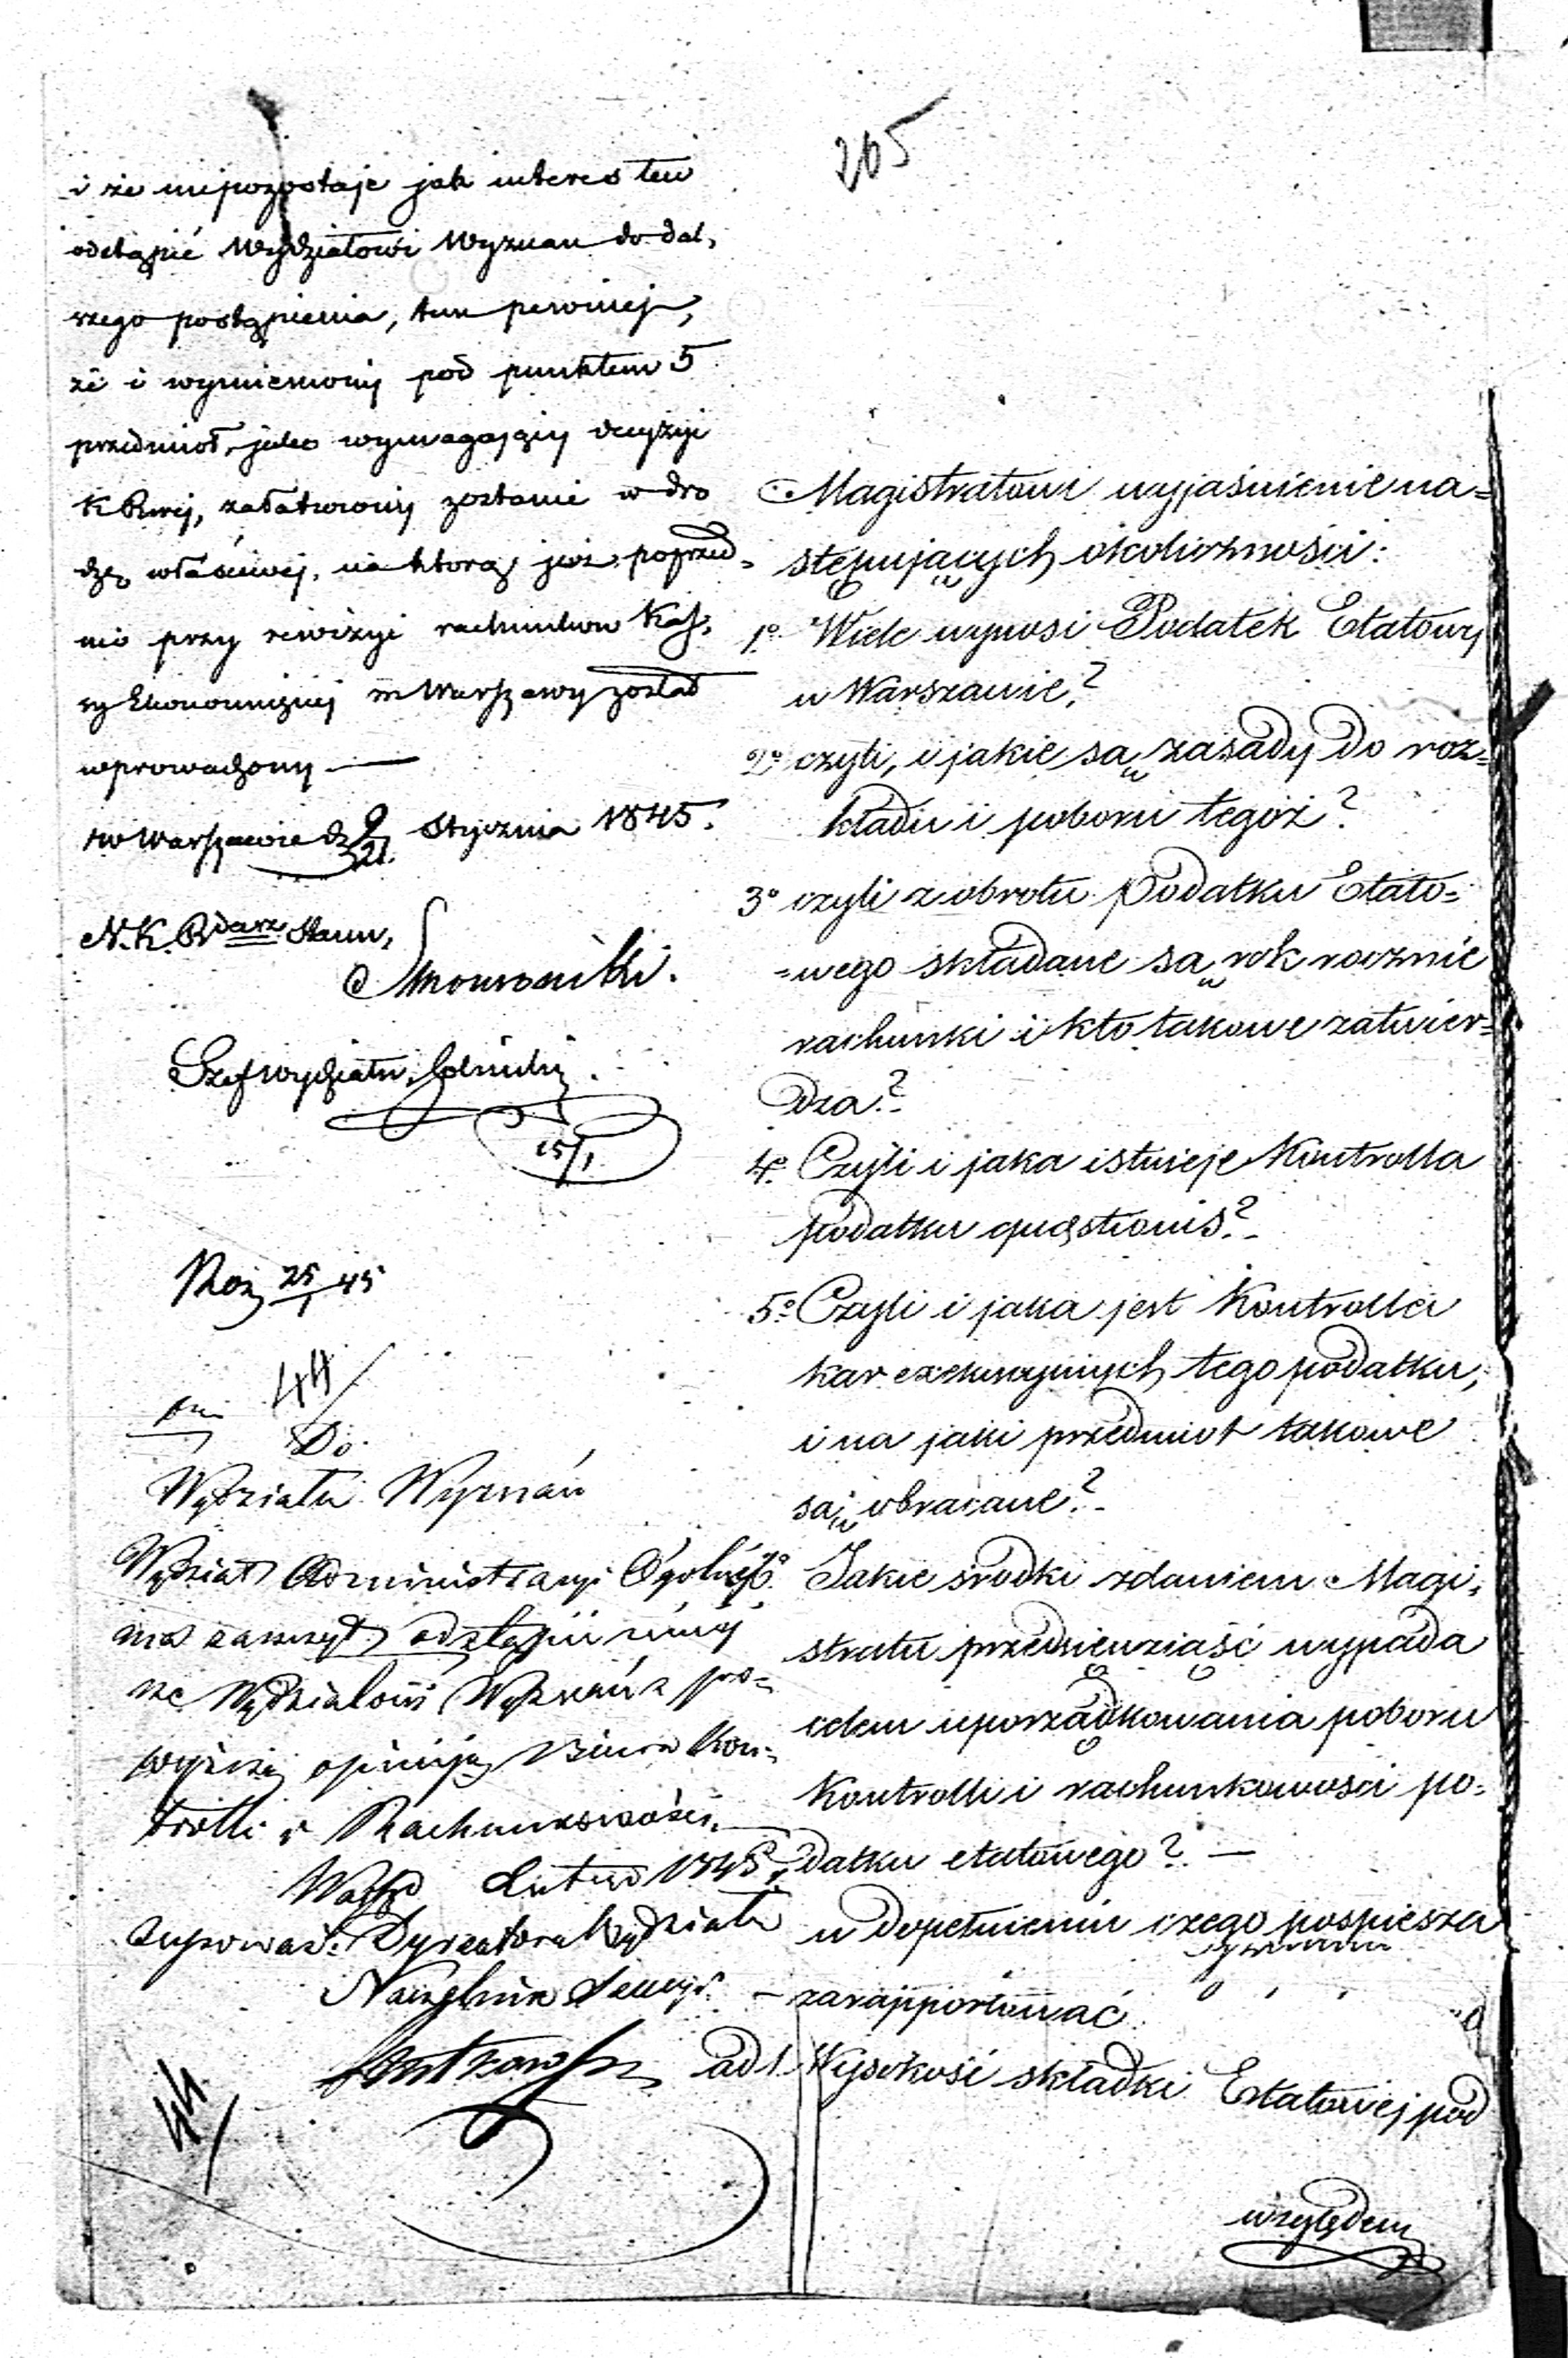 265
i że niepozostaje jak interes ten
odstąpić Wydziałowi Wyznan do dal,
szego postąpienia, tem pewniej,
że i wymieniony pod punktem 5
przedmiot, jako wymagający decyzyi
K Rwej, załatwiony zostanie w dro
dze właściwej, na którą już poprzed-
nio przy rewizyi rachunków Kas,
sy Ekonomicznej m Warszawy został
wprowadzony —
w Warszawie d 9/21 Stycznia 1845.
N. K.
Szef Wydziału
15/1
25/1 45
44
Do
Wydziału Wyznań
Wydział Administracyi Ogólnej
ma zaszczyt odstąpić
Wydziałowi Wyznań z po-
wyższą opiniją Biura Kon-
trolli i Rachunkowości.
Lutego 1845
Dyrektora Wydziału
Naczelnik Sekcyi
44
Magistratowi wyjaśnienie na=
stępujących okoliczności:
1º Wiele wynosi Podatek Etatowy
w Warszawie?
2º czyli, i jakie są zasady do roz=
kładu i poboru tegoż?
3º czyli z obrotu Podatku Etato=
=wego składane są rok rocznie
rachunki i kto takowe zatwier=
dza?
4º Czyli i jaka istnieje Kontrolla
podatku quaestionis?
5º Czyli i jaka jest Kontrolla
kar exekucyjnych tego podatku,
i na jaki przedmiot takowe
są obracane?
6º Jakie środki zdaniem Magi,
stratu przedsięwziąść wypada
celem uporządkowania poboru
Kontrolli i rachunkowości po-
datku etatowego? —
w dopełnieniu czego pospiesza
– zarapportować
ad 1. Wysokość składki Etatowej pod
względem